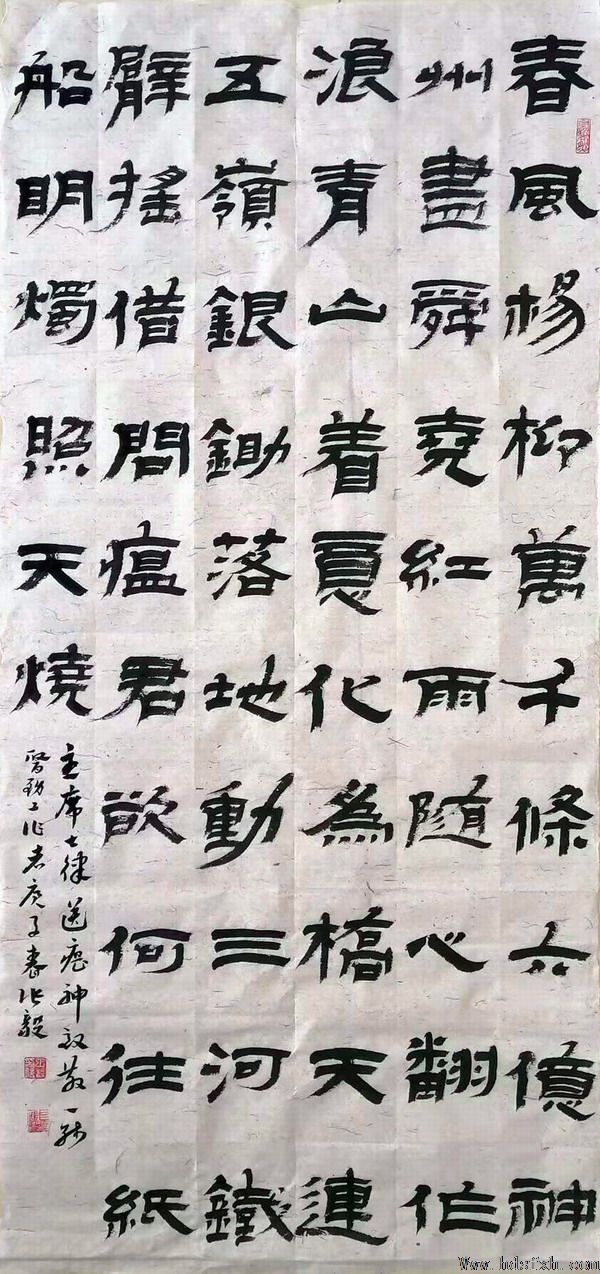 春風楊柳萬千條六億神
州盡舜堯紅雨隨心翻作
浪青山着意化為橋天連
五嶺銀鋤落地動三河鐵
臂搖借問瘟君欲何往紙
船明燭照天燒
主席七律送瘟神敬献一线
醫務工作者庚子春张毅